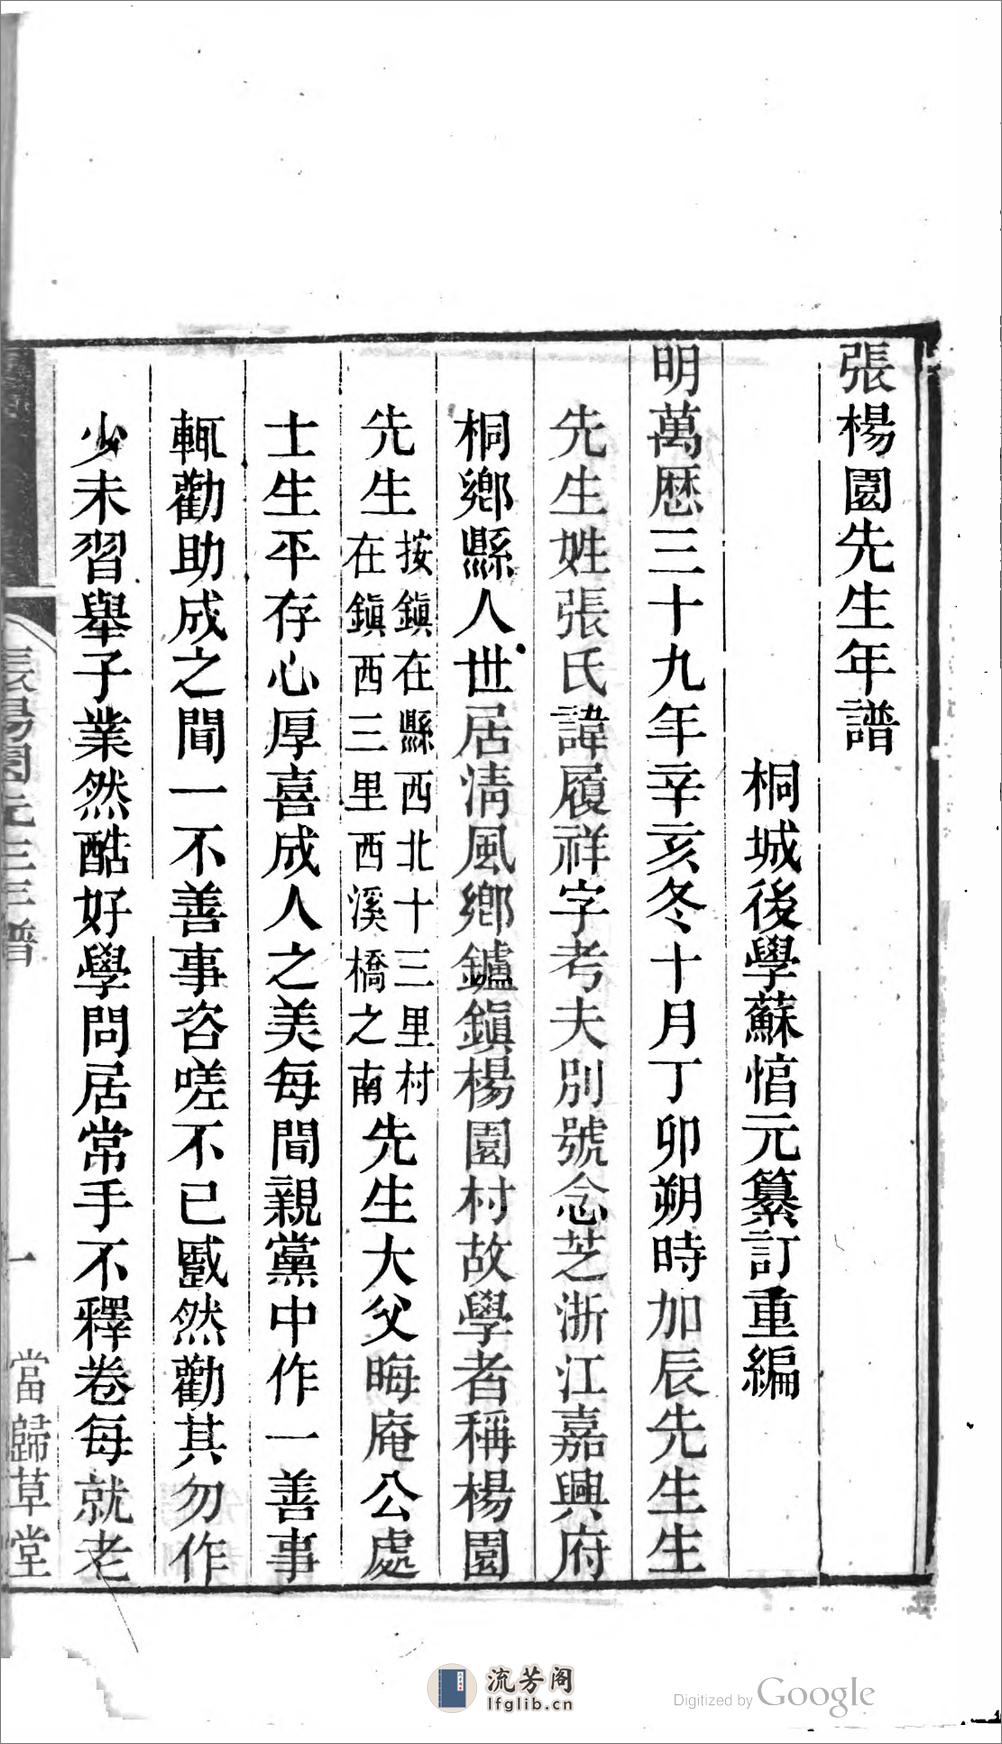 張楊園先生年譜
桐城後學蘇惇元纂訂重編
明萬歷三十九年辛亥冬十月丁卯朔時加辰先生生
先生姓張氏諱履祥字考夫別號念芝浙江嘉興府
桐鄉縣人世居淸風鄉鑪鎭楊園村故學者稱楊園
先生
按鎭在縣西北十三里村
在鎭西三里西溪橋之南
先生大父晦庵公處
士生平存心厚喜成人之美每聞親黨中作一善事
輒勸助成之聞一不善事咨嗟不已戚然勸其勿作
少未習舉子業然酷好學問居常手不釋卷每就老
張楊園先生年譜
一
當歸草堂
流芳阁
lfglib.cn
Digitized by Google